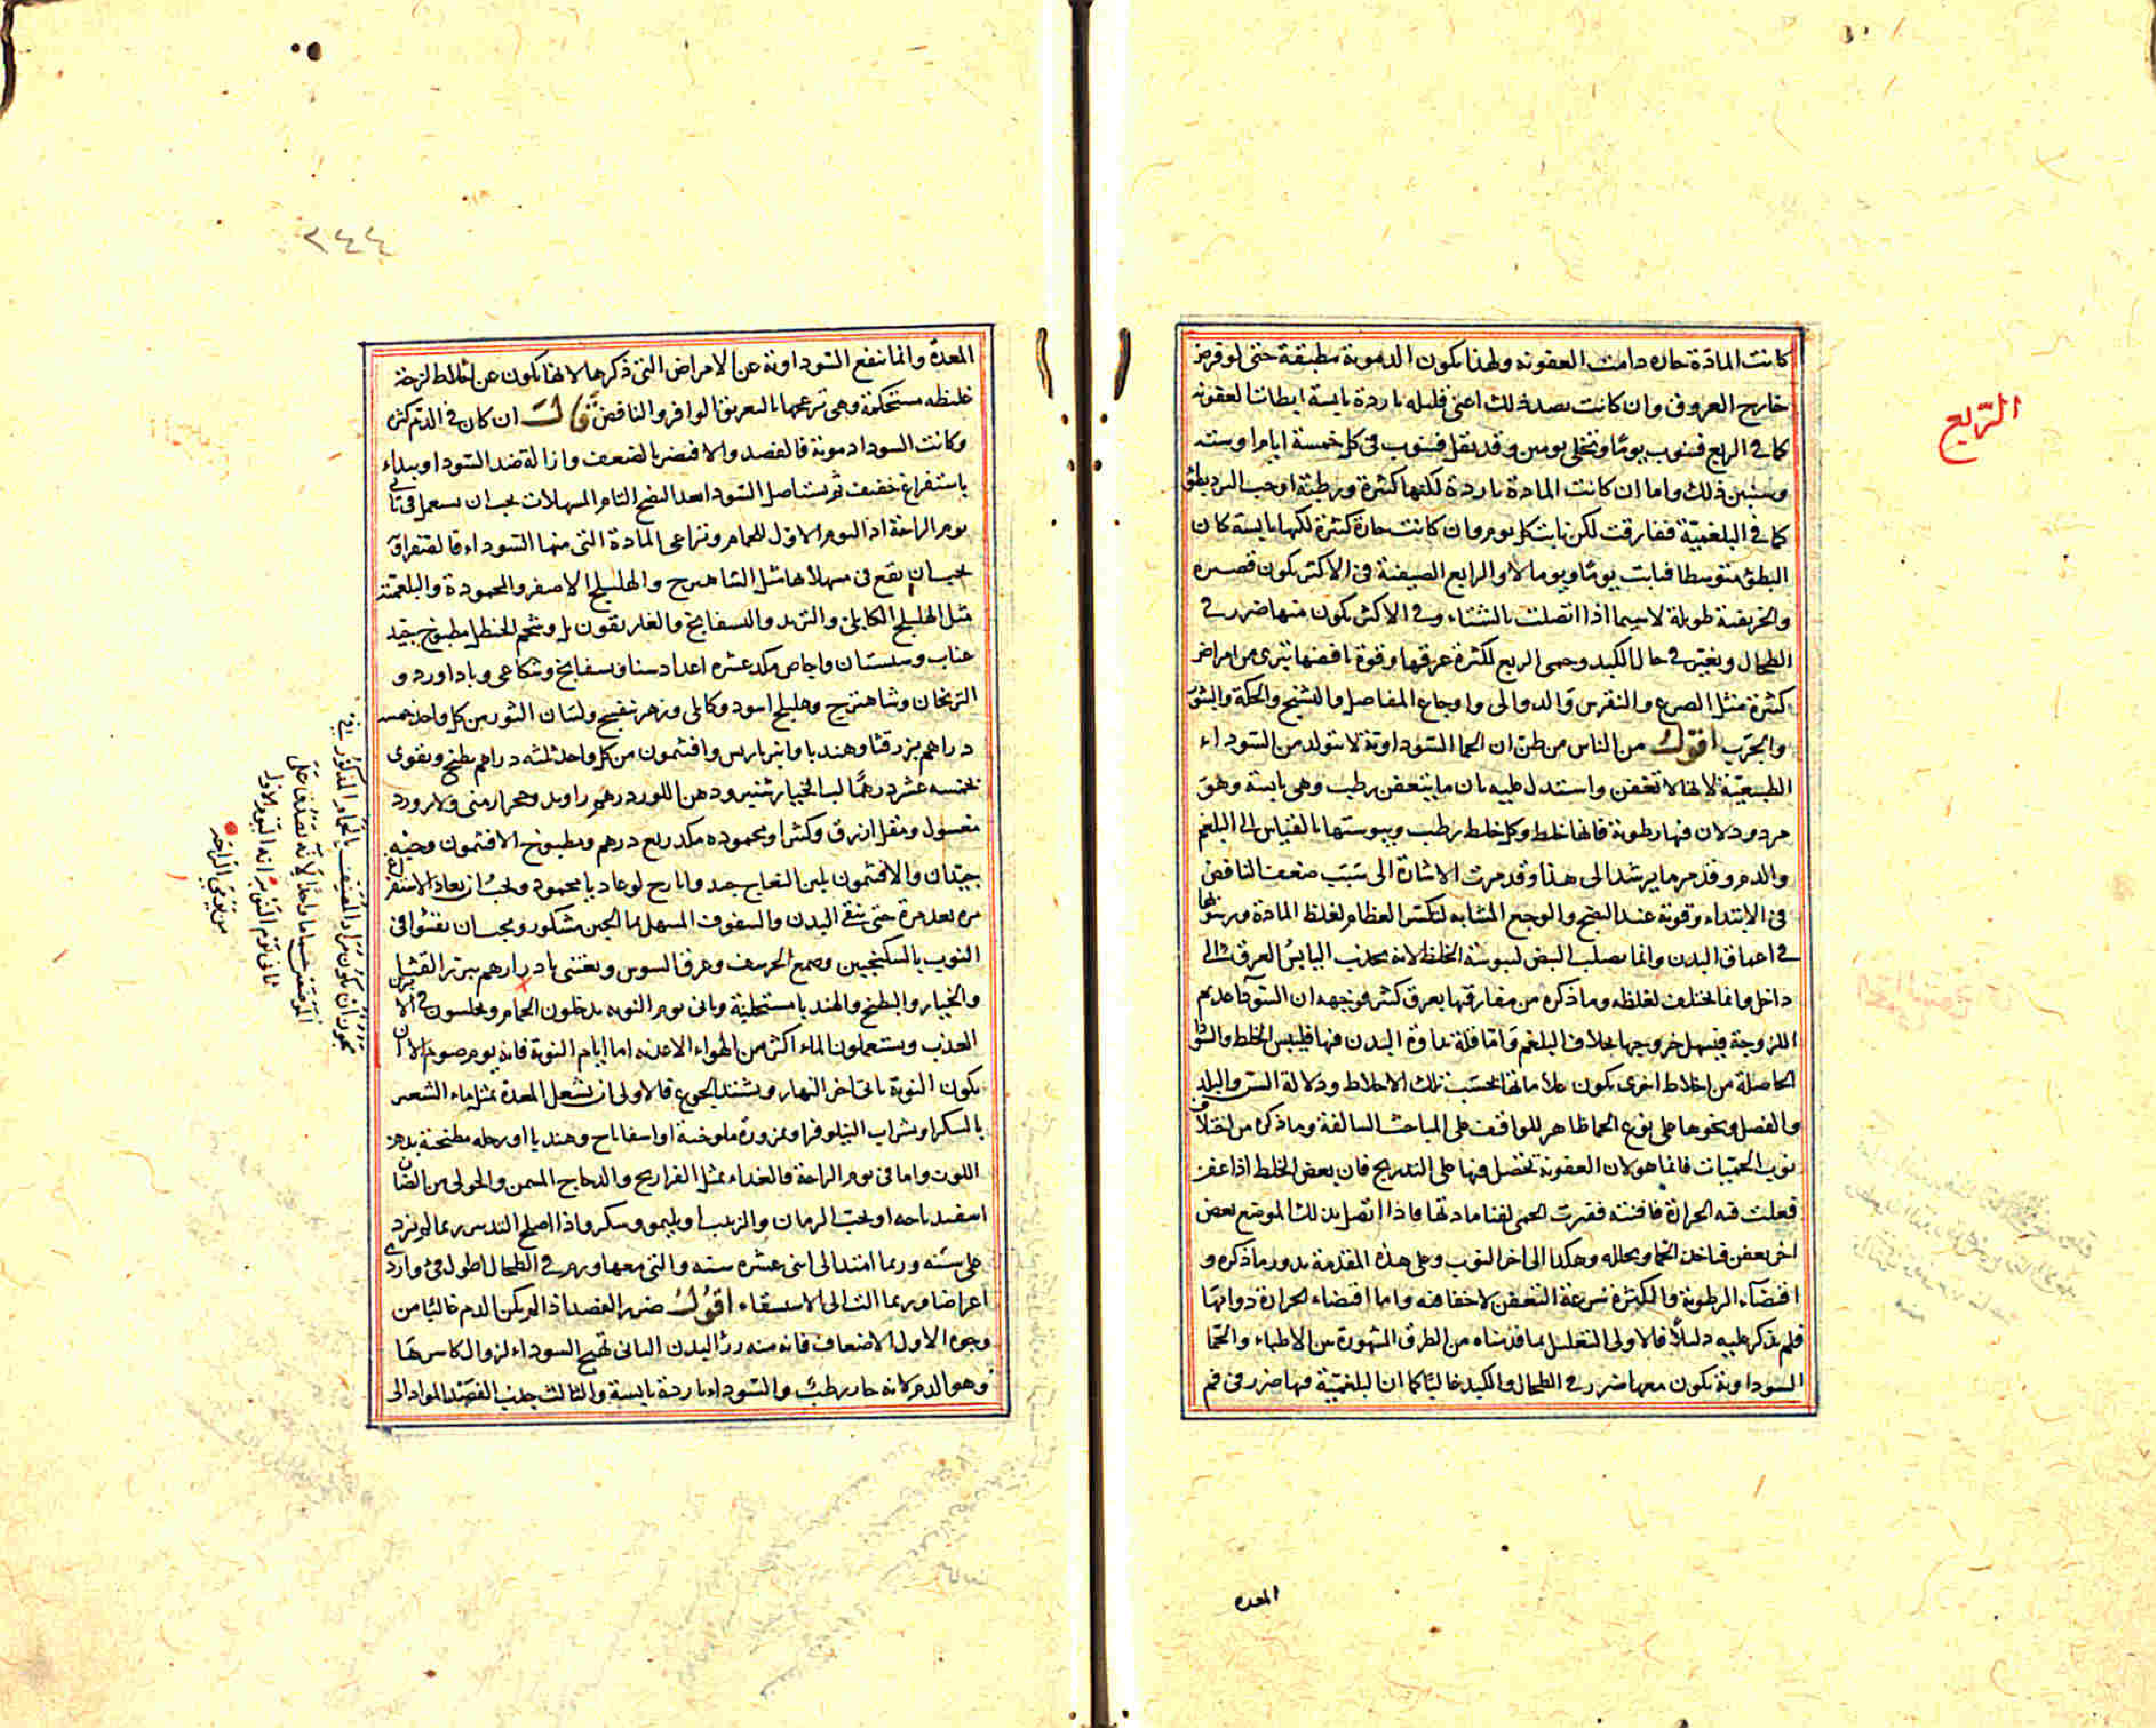 الربع
كانت المادة حاره دامت العفونه ولهذا تكون الدموية مطبقة حتى لو فرض
خارج العروق وان كانت بضد ذلك اعنى قليله باردة يابسة ابطات العفونه
كما فى الربع فينوب يومًا وتخلى يومين وقد يقل فينوب فى كل خمسة ايام او ستة
وسنين ذلك واما ان كانت المادة باردة لكنها كثيرة ورطبة اوجب البرد بطئ
كما فى البلغمية ففارقت لكن نابت كل يوم وان كانت حارة كثيرة لكنها يابسة كان
البطؤ متوسطا فنابت يومًا ويوما لا والرابع الصيفية فى الاكثر يكون قصيره
والخريفية طويلة لاسيما اذا اتصلت بالشتاء وفى الاكثر يكون منها ضرر فى
الطحال وتغير فى حال الكبد وحمى الربع لكثرة عرقها وقوة نافضها تبرى من امراض
كثيرة مثل الصرع والنقرس والدوالى واوجاع المفاصل والتشنج والحكة والبثور
والجرب اقول من الناس من ظن ان الحما السوداوية لا تتولد من السوداء
الطبيعية لانها لا تعفن واستدل عليه بان ما يتعفن رطب وهى يابسة وهو
مردود لان فيها رطوبة فانها خلط وكل خلط رطب ويبوستها بالقياس الى البلغم
والدم وقد مر ما يرشد الى هذا وقد مرت الاشارة الى سبب ضعف النافض
فى الابتداء وقوته عند النضج والوجع المشابه لتكسر العظام لغلظ المادة ورسوخها
فى اعماق البدن وانما يصلب النبض ليبوسة الخلط لانه يجذب اليابس العرق الى
داخل وانما يختلف لغلظه وما ذكره من مفارقتها بعرق كثير فوجهه ان السودآء عديم
اللزوجة فيسهل خروجها بخلاف البلغم واما قلة نداوة البدن فيها فليبس الخلط والسوداء
الحاصلة من اخلاط اخرى يكون علاماتها بحسب تلك الاخلاط ودلالة السن والبلد
والفصل ونحوها على نوع الحما ظاهر للواقف على المباحث السالفة وما ذكره من اختلاف
نوب الحميات فانما هو لان العفونة تحصل فيها على التدريج فان بعض الخلط اذا عفن
فعلت فيه الحرارة فافنته ففترت الحمى لفنا مادتها فاذا اتصل بذلك الموضع بعض
اخر بعض فياخذ الحما ويحلله وهكذا الى اخر النوب وعلى هذه المقدمة يدور ما ذكره و
اقتضآء الرطوبة والكثرة سرعة التعفن لاخفا فيه واما اقتضاء الحرارة دوامها
فلم يذكر عليه دليلاً فالاولى التعليل بما قدمناه من الطرق المشهورة من الاطباء والحما
السوداوية تكون معها ضرر فى الطحال والكبد غالبًا كما ان البلغمية فيها ضرر فى فم
المعده
٢٤٤
المعدة وانما تنفع السوداوية عن الامراض التى ذكرها لانها تكون عن اخلاط لزجة
غليظه مستحكمة وهى تزعجها بالتعريق الوافر والنافض قال ان كان فى الدم كثره
وكانت السودا دموية فالفصد والا فيضر بالضعف وازالة ضد السودا ويبداء
باستفراغ خفيف ثم يستاصل السودا بعد النضج التام المسهلات يجب ان يستعمل فى ثانى
يوم الراحة اذ اليوم الاول للحمام وتراعى المادة التى منها السوداء فالصفراوية
يجب ان يقع فى مسهلاتها مثل الشاهترج والهليلج الاصفر والمحمودة والبلغمية
مثل الهليلج الكابلى والتربد والبسفايج والغاريقون بل وشحم الحنظل مطبوخ جيد
عناب وسبستان واجاص مكد عشره اعداد سنا وبسفايج وشكاعى وباداورد و
الترنجان وشاهترج وهليلج اسود وكابلى وزهر بنفسج ولسان الثور من كل واحد خمسه
دراهم بزر قثا وهندبا وانبرباريس وافتيمون من كل واحد ثلثه دراهم يطبخ ويقوى
بخمسه عشر درهمًا لب الخيار شنبر ودهن اللوز درهم راوند وحجر ارمنى ولازورد
مغسول ومقل ازرق وكثيرا ومحموده مكد ربع درهم ومطبوخ الافتيمون وحبه
جيدان والافتيمون بلبن النعاج جيد وايارج لوغاديا محمود ويجب ان يعاد الاستفراغ
مره بعد مرة حتى ينقى البدن والسفوف المسهل بماء الجبن مشكور ويجب ان تقيئوا فى
النوب بالسكنجبين وصمغ الحرشف وعرق السوس ويعتنى بادرارهم ببزر القثا
والخيار والبطيخ والهندبا مستحلبة وثانى يوم النوبه يدخلون الحمام ويجلسون فى الابزن
العذب ويستعملون الماء اكثر من الهواء الاغذيه اما ايام النوبة فانه يوم صوم الا ان
يكون النوبة ياتى اخر النهار ويشتد الجوع فالاولى ان يشغل المعدة بمثل ماء الشعير
بالسكر او بشراب النيلوفر او بمزورة ملوخية او اسفاناخ وهندبا او رجله مطجنة بدهن
اللوز واما فى يوم الراحة فالغذاء بمثل الفراريج والدجاج المسمن والحولى من الضان
اسفيدباجه او بحب الرمان والزبيب او بليمو وسكر واذا اصلح التدبير ربما لم يزد
على سنه وربما امتد الى اثنى عشره سنه والتى معها ورم فى الطحال اطول فى وارى
اعراضا وربما الت الى الاستسقاء اقول ضرر الفصد اذا لم يكن الدم غالبًا من
وجوه الاول الاضعاف فانه منه رد البدن الثانى تهيج السوداء لزوال كاسرتها
وهو الدم لانه حار رطب والسوداء باردة يابسة والثالث جلب الفصد المواد الى
يجوز ان يكون مراد المصنف بالحمام المذكور فى
ثانى يوم النوبة انه اليوم الاول
من يومى الراحة